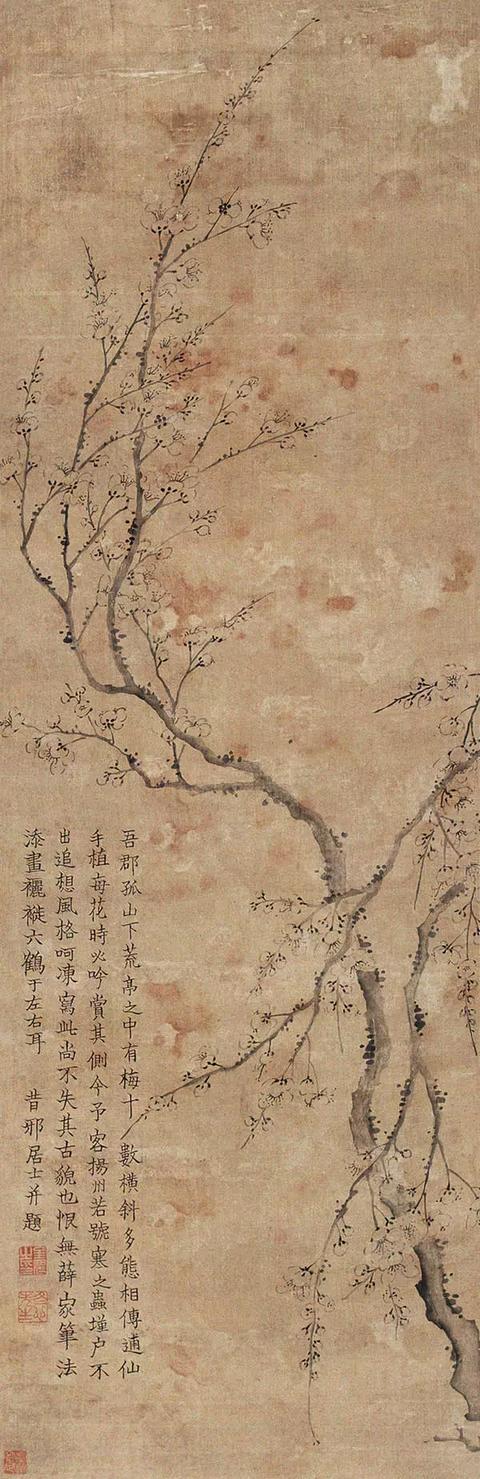 吾郡孤山下荒亭之中有梅十數橫斜多態相傳逋仙
手植每花時必吟賞其側今予客揚州若號寒之蟲墐户不
出追想風格呵凍寫此尚不失其古貌也恨無薛家筆法
添畫褷褷六鶴于左右耳 昔邪居士并題